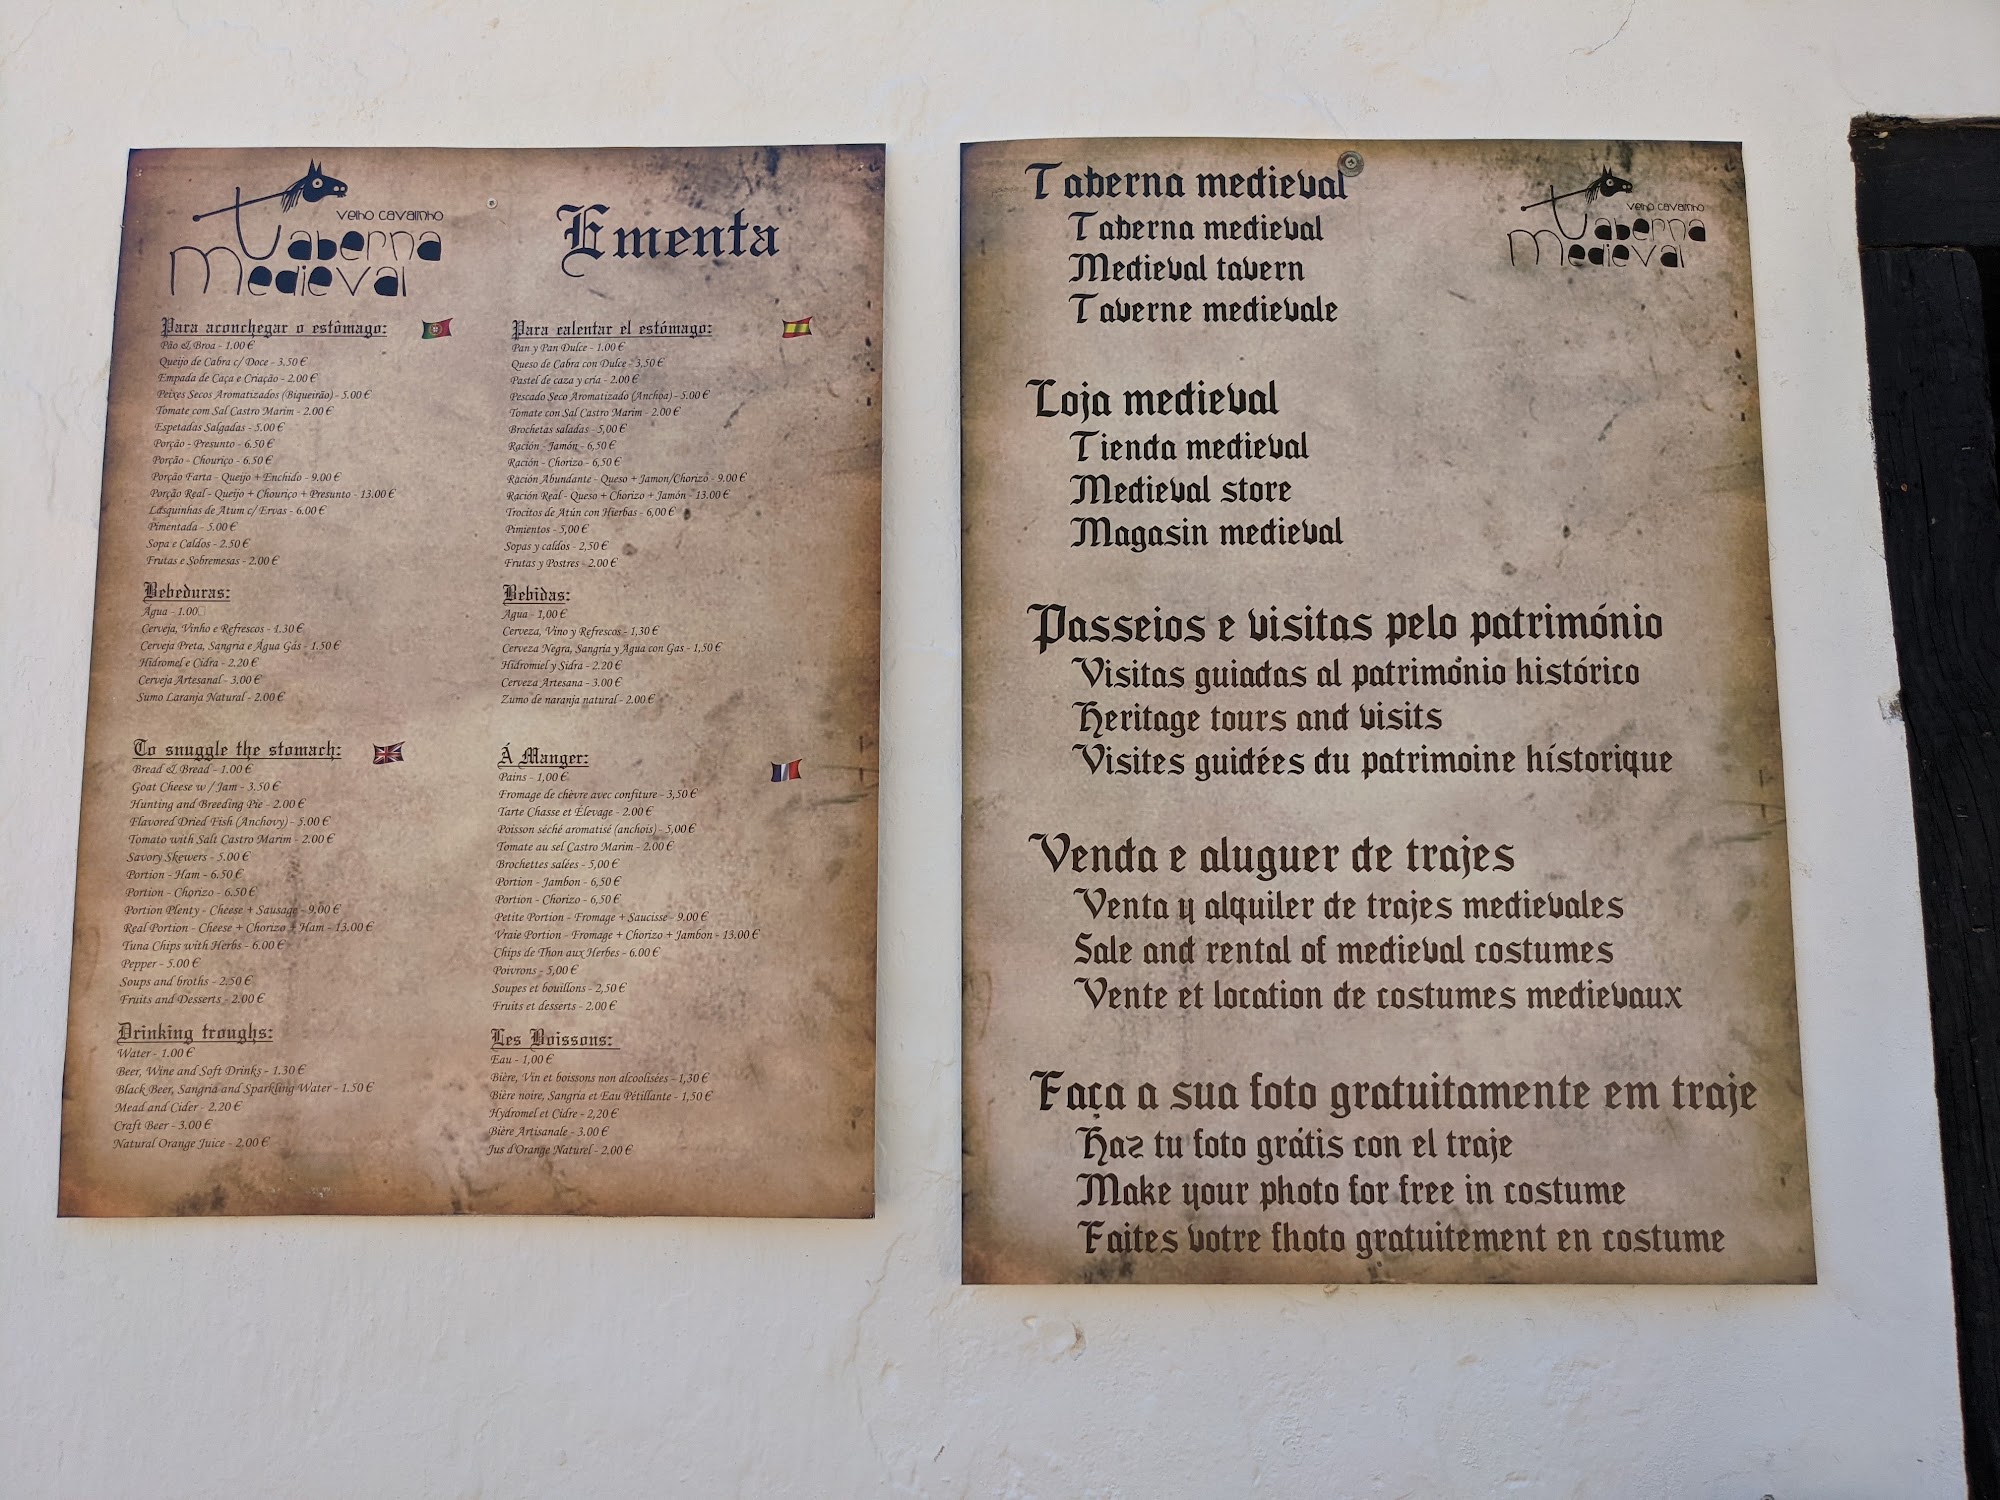 velho cavalinho
Taberna
Medieval
Ementa
Para aconchegar o estômago:
Pão & Broa - 1.00 €
Queijo de Cabra c/ Doce - 3.50 €
Empada de Caça e Criação - 2.00 €
Peixes Secos Aromatizados (Biqueirão) - 5.00 €
Tomate com Sal Castro Marim - 2.00 €
Espetadas Salgadas - 5.00 €
Porção - Presunto - 6.50 €
Porção - Chouriço - 6.50 €
Porção Farta - Queijo + Enchido - 9.00 €
Porção Real - Queijo + Chouriço + Presunto - 13.00 €
Lasquinhas de Atum c/ Ervas - 6.00 €
Pimentada - 5.00 €
Sopa e Caldos - 2.50 €
Frutas e Sobremesas - 2.00 €
Bebeduras:
Água - 1.00
Cerveja, Vinho e Refrescos - 1.30 €
Cerveja Preta, Sangria e Água Gás - 1.50 €
Hidromel e Cidra - 2.20 €
Cerveja Artesanal - 3.00 €
Sumo Laranja Natural - 2.00 €
Para calentar el estómago:
Pan y Pan Dulce - 1.00 €
Queso de Cabra con Dulce - 3,50 €
Pastel de caza y cría - 2.00 €
Pescado Seco Aromatizado (Anchoa) - 5.00 €
Tomate con Sal Castro Marim - 2.00 €
Brochetas saladas - 5,00 €
Ración - Jamón - 6,50 €
Ración - Chorizo - 6,50 €
Ración Abundante - Queso + Jamon/Chorizo - 9.00 €
Ración Real - Queso + Chorizo + Jamón - 13.00 €
Trocitos de Atún con Hierbas - 6,00 €
Pimientos - 5,00 €
Sopas y caldos - 2,50 €
Frutas y Postres - 2.00 €
Bebidas:
Agua - 1,00 €
Cerveza, Vino y Refrescos - 1,30 €
Cerveza Negra, Sangria y Agua con Gas - 1,50 €
Hidromiel y Sidra - 2.20 €
Cerveza Artesana - 3.00 €
Zumo de naranja natural - 2.00 €
To snuggle the stomach:
Bread & Bread - 1.00 €
Goat Cheese w / Jam - 3.50 €
Hunting and Breeding Pie - 2.00 €
Flavored Dried Fish (Anchovy) - 5.00 €
Tomato with Salt Castro Marim - 2.00 €
Savory Skewers - 5.00 €
Portion - Ham - 6.50 €
Portion - Chorizo - 6.50 €
Portion Plenty - Cheese + Sausage - 9.00 €
Real Portion - Cheese + Chorizo + Ham - 13.00 €
Tuna Chips with Herbs - 6.00 €
Pepper - 5.00 €
Soups and broths - 2.50 €
Fruits and Desserts - 2.00 €
Drinking troughs:
Water - 1.00 €
Beer, Wine and Soft Drinks - 1.30 €
Black Beer, Sangria and Sparkling Water - 1.50 €
Mead and Cider - 2.20 €
Craft Beer - 3.00 €
Natural Orange Juice - 2.00 €
Á Manger:
Pains - 1,00 €
Fromage de chèvre avec confiture - 3,50 €
Tarte Chasse et Élevage - 2.00 €
Poisson séché aromatisé (anchois) - 5,00 €
Tomate au sel Castro Marim - 2.00 €
Brochettes salées - 5,00 €
Portion - Jambon - 6,50 €
Portion - Chorizo - 6,50 €
Petite Portion - Fromage + Saucisse - 9.00 €
Vraie Portion - Fromage + Chorizo + Jambon - 13.00 €
Chips de Thon aux Herbes - 6.00 €
Poivrons - 5,00 €
Soupes et bouillons - 2,50 €
Fruits et desserts - 2.00 €
Les Boissons:
Eau - 1,00 €
Bière, Vin et boissons non alcoolisées - 1,30 €
Bière noire, Sangria et Eau Pétillante - 1,50 €
Hydromel et Cidre - 2,20 €
Bière Artisanale - 3.00 €
Jus d'Orange Naturel - 2.00 €
Taberna medieval
Taberna medieval
Medieval tavern
Taverne medievale
velho cavalinho
Taberna
Medieval
Loja medieval
Tienda medieval
Medieval store
Magasin medieval
Passeios e visitas pelo património
Visitas guiadas al patrimônio histórico
Heritage tours and visits
Visites guidées du patrimoine hístorique
Venda e aluguer de trajes
Venta y alquiler de trajes medievales
Sale and rental of medieval costumes
Vente et location de costumes medievaux
Faça a sua foto gratuitamente em traje
Haz tu foto grátis con el traje
Make your photo for free in costume
Faites votre fhoto gratuitement en costume